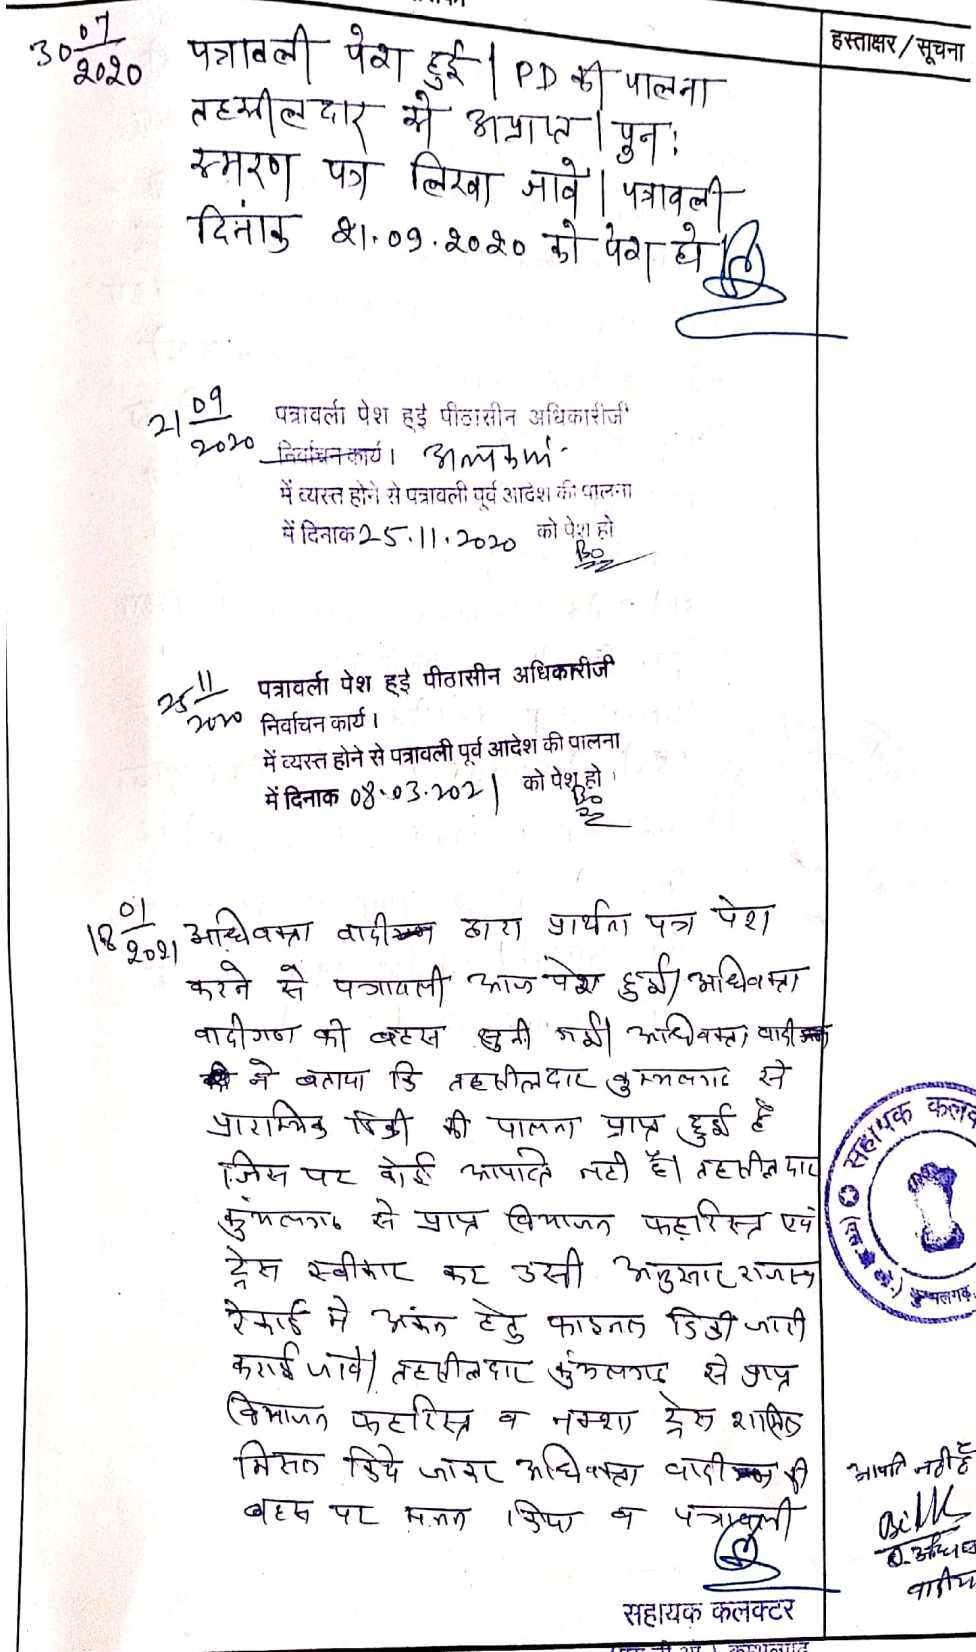 हस्ताक्षर/सूचना
30 07/2020 पत्रावली पेश हुई। PD की पालना
तहसीलदार से अप्राप्त। पुन:
स्मरण पत्र लिखा जावे। पत्रावली
दिनांक 21.09.2020 को पेश हो
21 09/2020 पत्रावली पेश हुई पीठासीन अधिकारीजी
निर्वाचन कार्य। अन्य कार्य
में व्यस्त होने से पत्रावली पूर्व आदेश की पालना
में दिनाक 25.11.2020 को पेश हो
25 11/2020 पत्रावली पेश हुई पीठासीन अधिकारीजी
निर्वाचन कार्य।
में व्यस्त होने से पत्रावली पूर्व आदेश की पालना
में दिनाक 08.03.2021 को पेश हो
18 01/2021 अधिवक्ता वादी द्वारा प्रार्थना पत्र पेश
करने से पत्रावली आज पेश हुई। अधिवक्ता
वादीगण की बहस सुनी गई। अधिवक्ता वादी
ने बताया कि तहसीलदार कुम्भलगढ से
प्रारम्भिक डिक्री की पालना प्राप्त हुई है
जिस पर कोई आपत्ति नही है। तहसीलदार
कुंभलगढ से प्राप्त विभाजन फहरिस्त एवं
ट्रेस स्वीकार कर उसी अनुसार राजस्व
रेकार्ड मे अंकन हेतु फाइनल डिक्री जारी
कराई जावे। तहसीलदार कुंभलगढ से प्राप्त
विभाजन फहरिस्त व नक्शा ट्रेस शामिल
मिसल किये जाकर अधिवक्ता वादी की
बहस पर मनन किया व पत्रावली
सहायक कलक्टर
सहायक कलक
कुम्भलगढ़
आपत्ति नही है
वादीगण